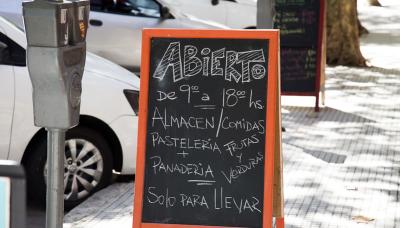 ABIERTO
de 9⁰⁰ a 18⁰⁰ hs
ALMACEN / COMIDAS
PASTELERIA FRUTAS
+ Y
PANADERIA VERDURAS
SOLO PARA LLEVAR